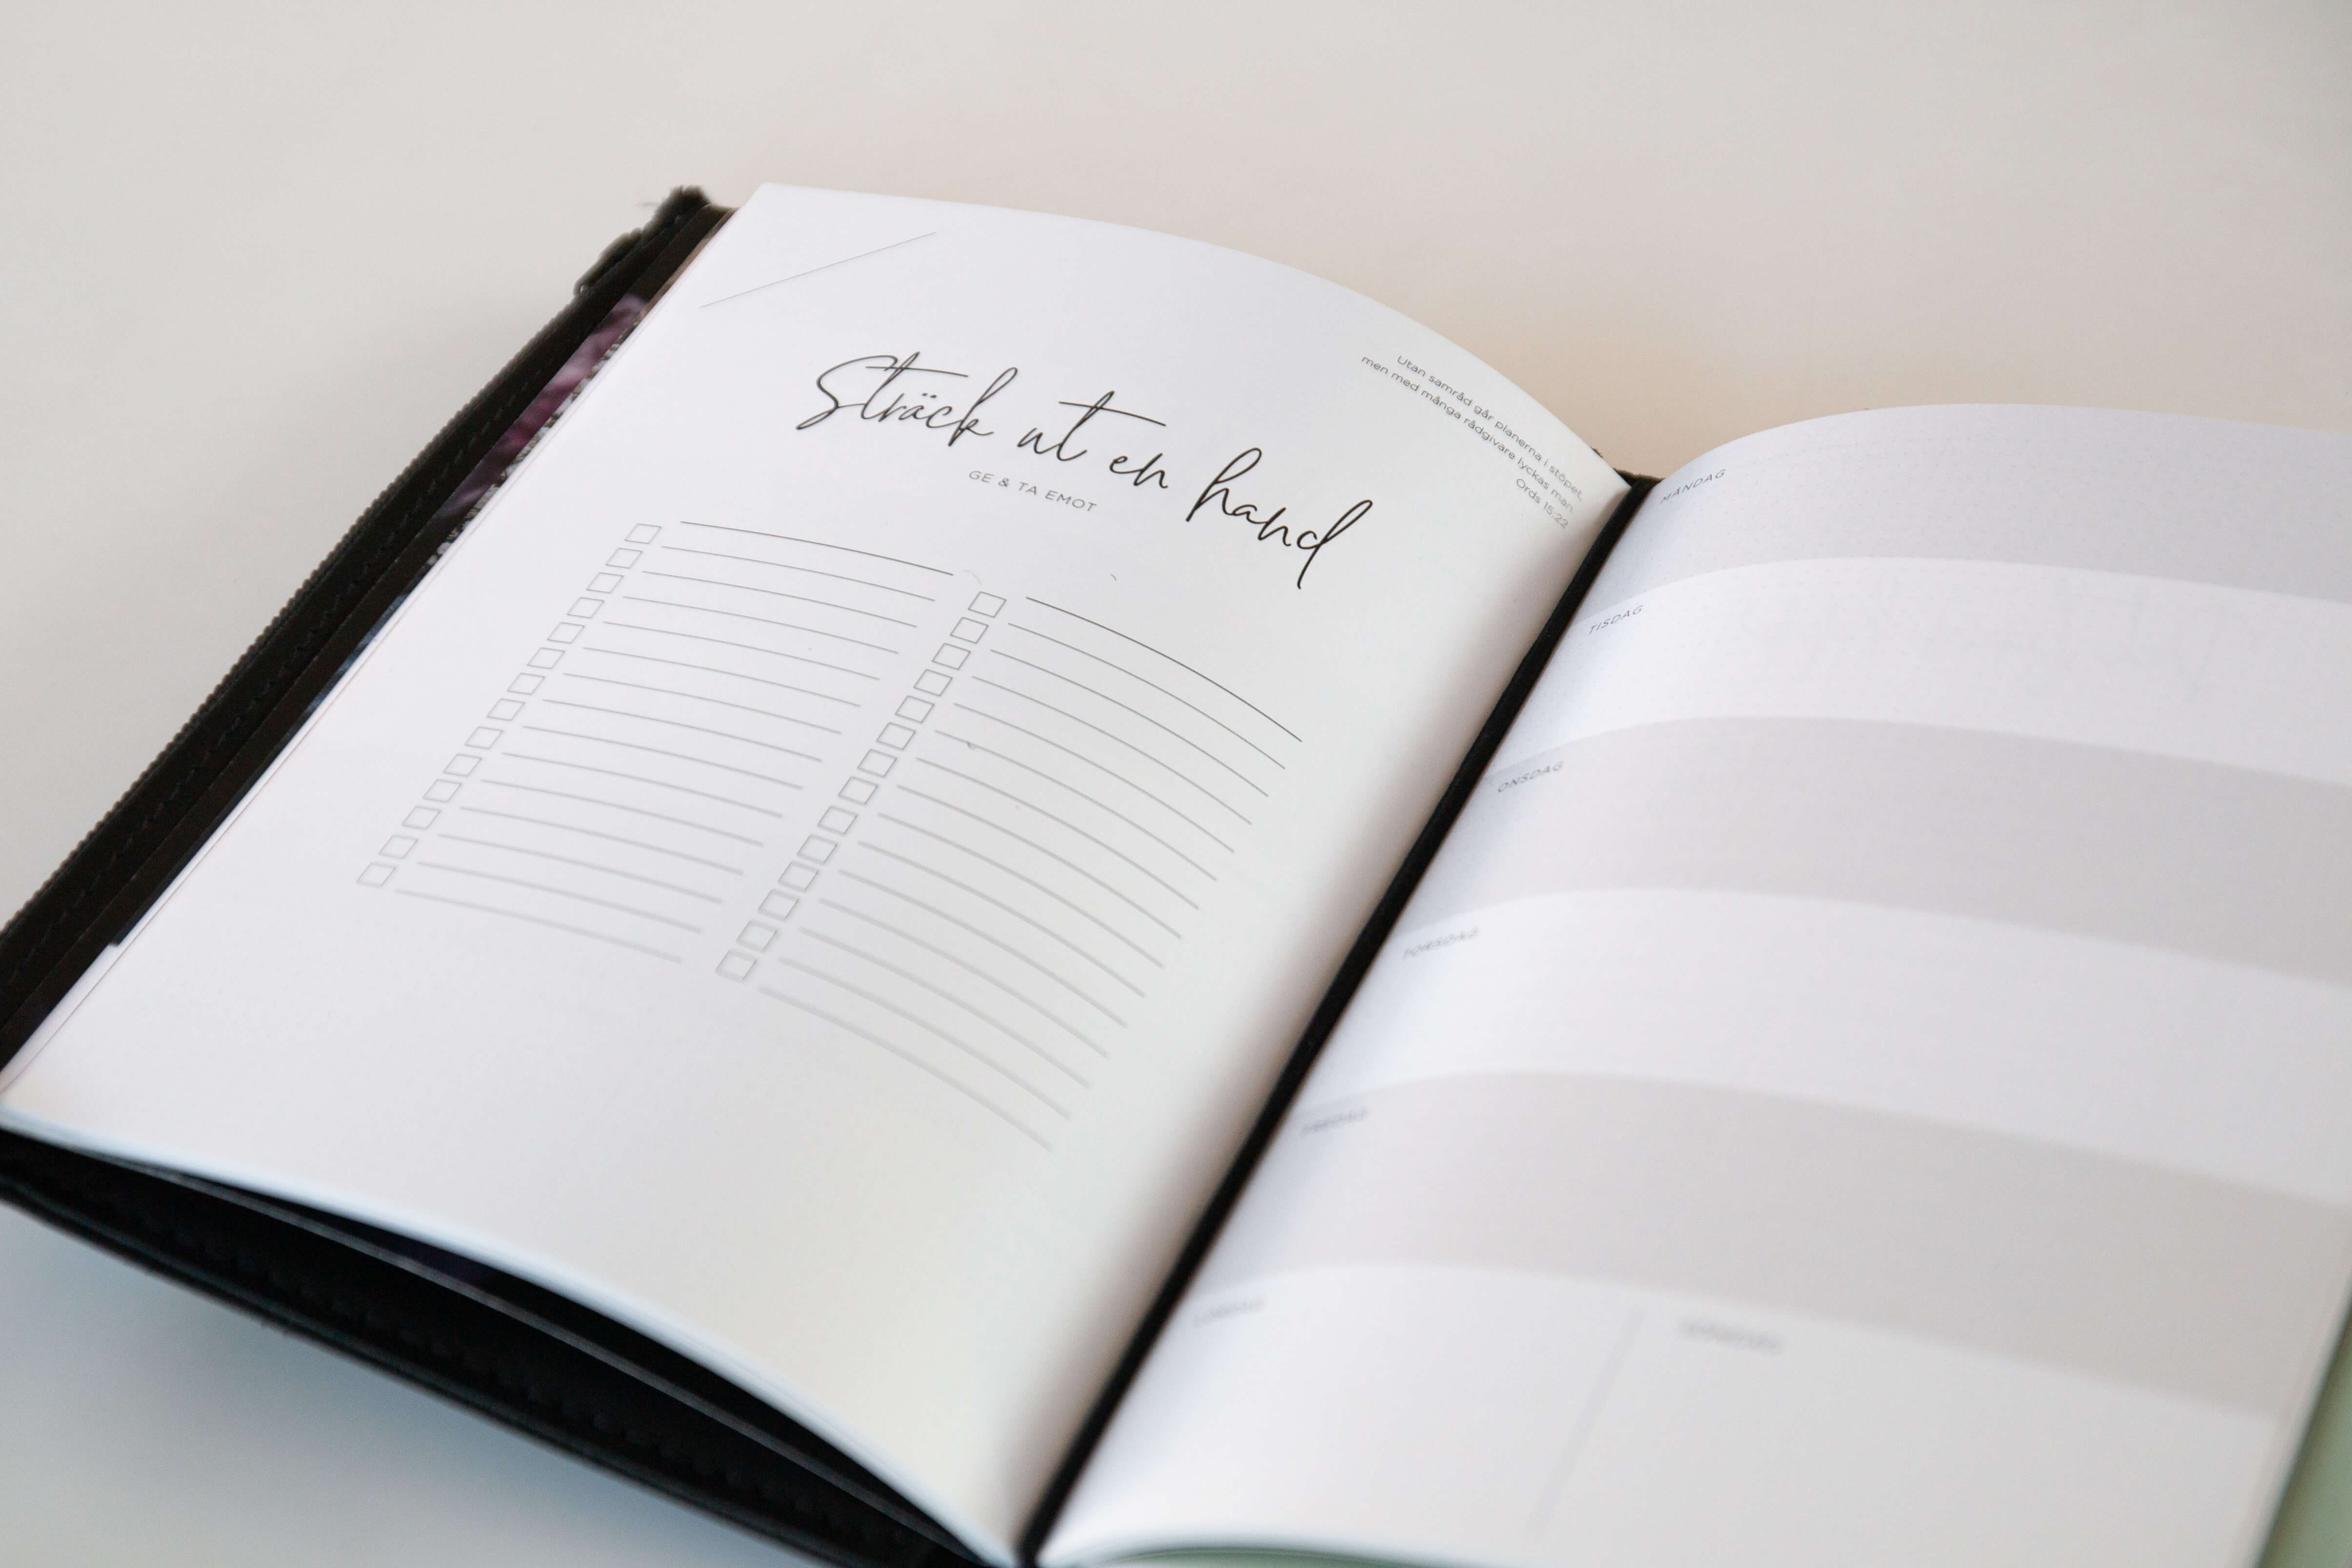 Sträck ut en hand
GE & TA EMOT
Utan samråd går planerna i stöpet,
men med många rådgivare lyckas man.
Ords 15:22
MÅNDAG
TISDAG
ONSDAG
TORSDAG
FREDAG
LÖRDAG